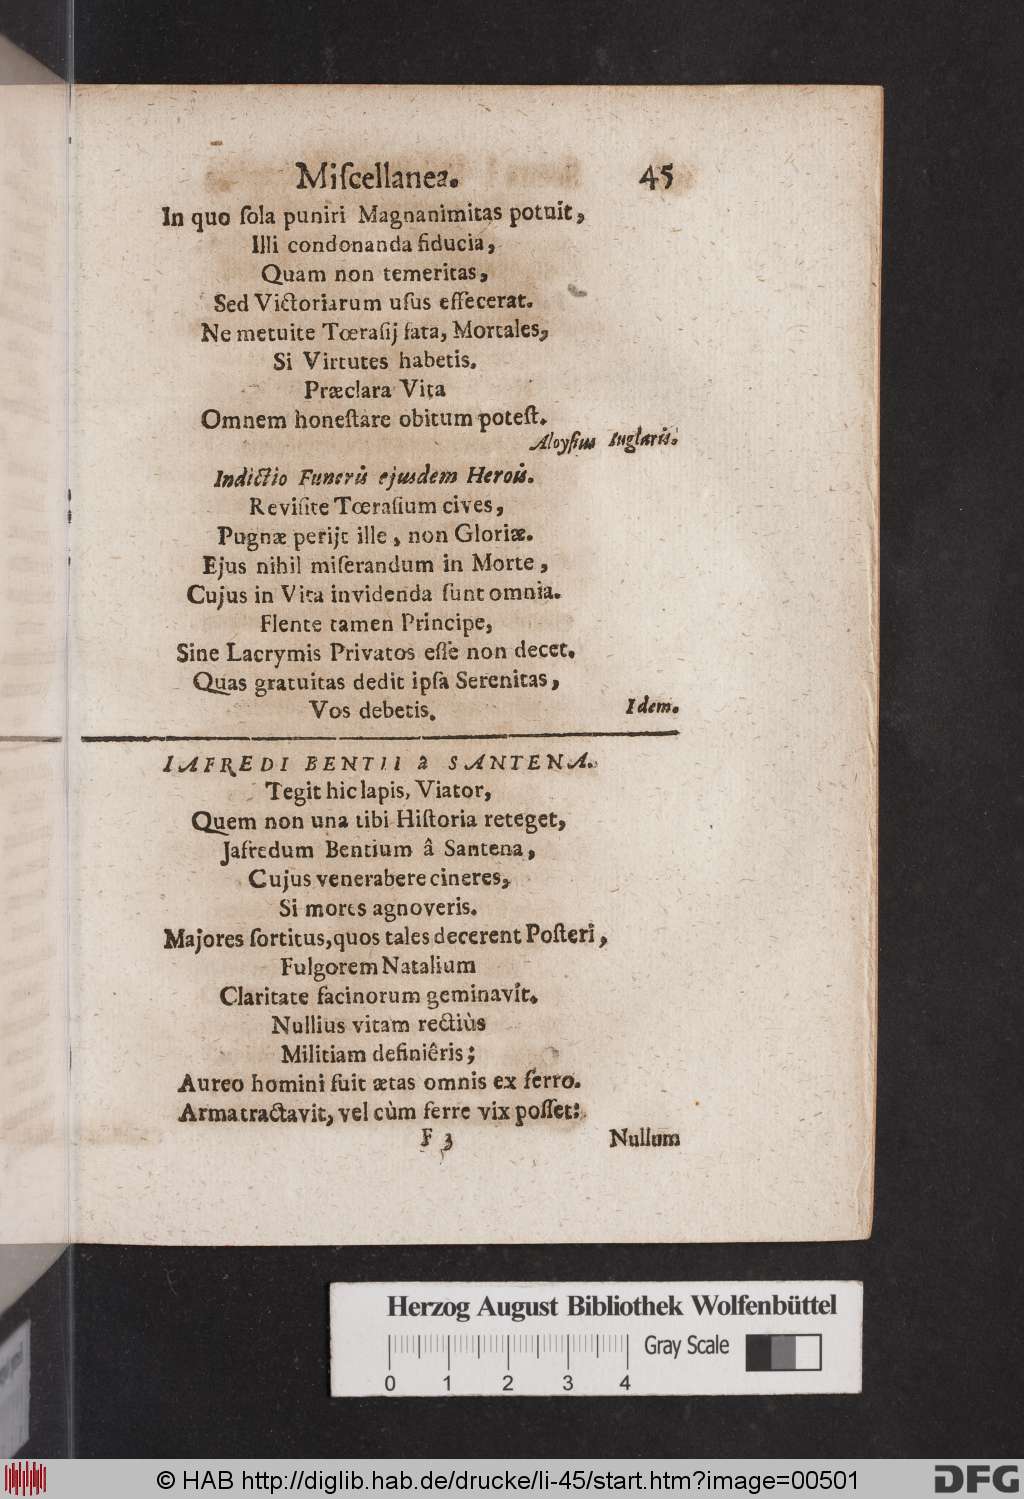 Miſcellanea. 45
In quo ſola puniri Magnanimitas potuit,
Illi condonanda fiducia,
Quam non temeritas,
Sed Victoriarum uſus effecerat.
Ne metuite Tœraſij fata, Mortales,
Si Virtutes habetis.
Præclara Vita
Omnem honeſtare obitum poteſt.
Aloyſius Iuglaris.
Indictio Funeris ejusdem Herois.
Reviſite Tœraſium cives,
Pugnæ perijt ille, non Gloriæ.
Ejus nihil miſerandum in Morte,
Cujus in Vita invidenda ſunt omnia.
Flente tamen Principe,
Sine Lacrymis Privatos eſſe non decet.
Quas gratuitas dedit ipſa Serenitas,
Vos debetis. Idem.
IAFREDI BENTII à SANTENA.
Tegit hic lapis, Viator,
Quem non una tibi Hiſtoria reteget,
Jafredum Bentium â Santena,
Cujus venerabere cineres,
Si mores agnoveris.
Majores ſortitus, quos tales decerent Poſteri,
Fulgorem Natalium
Claritate facinorum geminavit.
Nullius vitam rectiùs
Militiam definiêris;
Aureo homini fuit ætas omnis ex ferro.
Arma tractavit, vel cùm ferre vix poſſet:
F 3 Nullum
Herzog August Bibliothek Wolfenbüttel
Gray Scale
0 1 2 3 4
© HAB http://diglib.hab.de/drucke/li-45/start.htm?image=00501
DFG